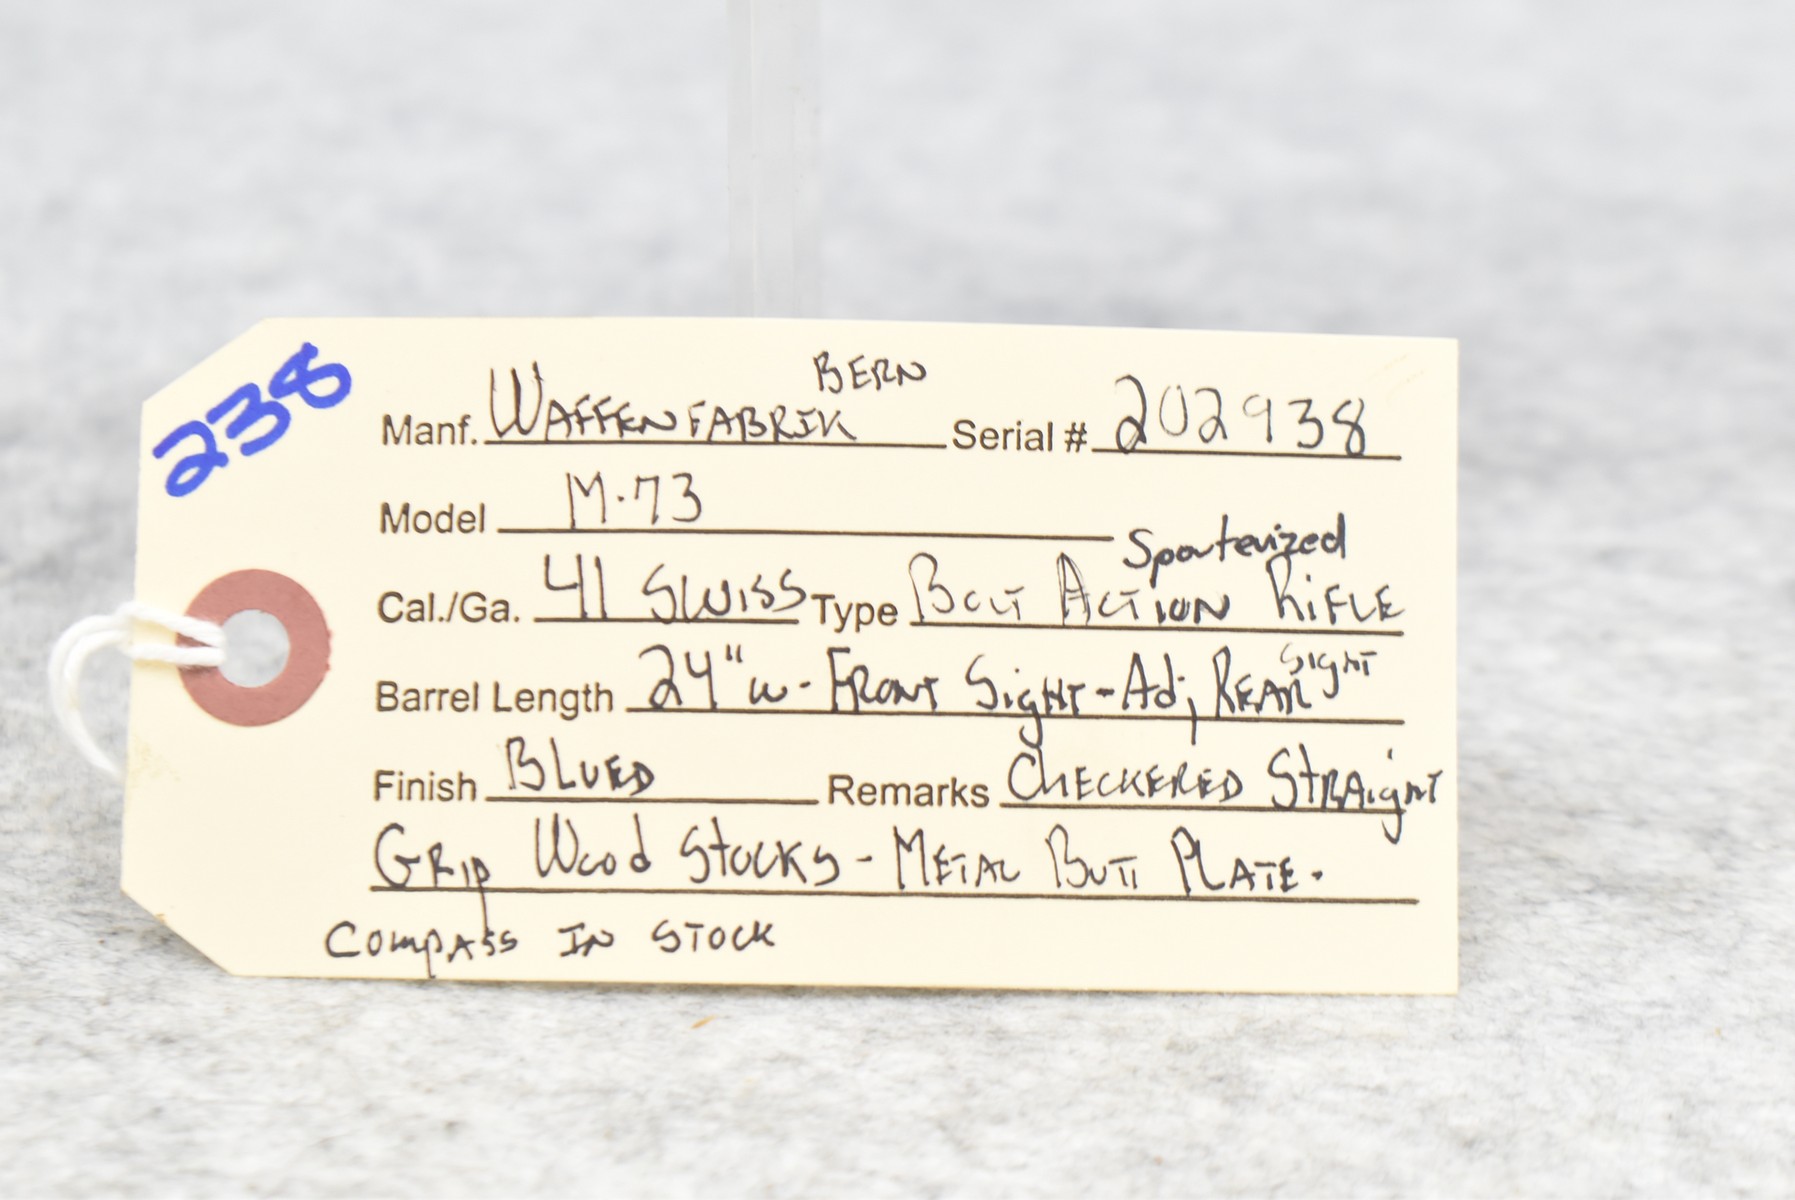 238
Manf. WAFFENFABRIK BERN Serial # 202938
Model M-73
Cal./Ga. 41 SWISS Type BOLT ACTION Sporterized RIFLE
Barrel Length 24" w- FRONT SIGHT - Adj REAR SIGHT
Finish BLUED Remarks CHECKERED STRAIGHT
GRIP WOOD STOCKS - METAL BUTT PLATE.
COMPASS IN STOCK